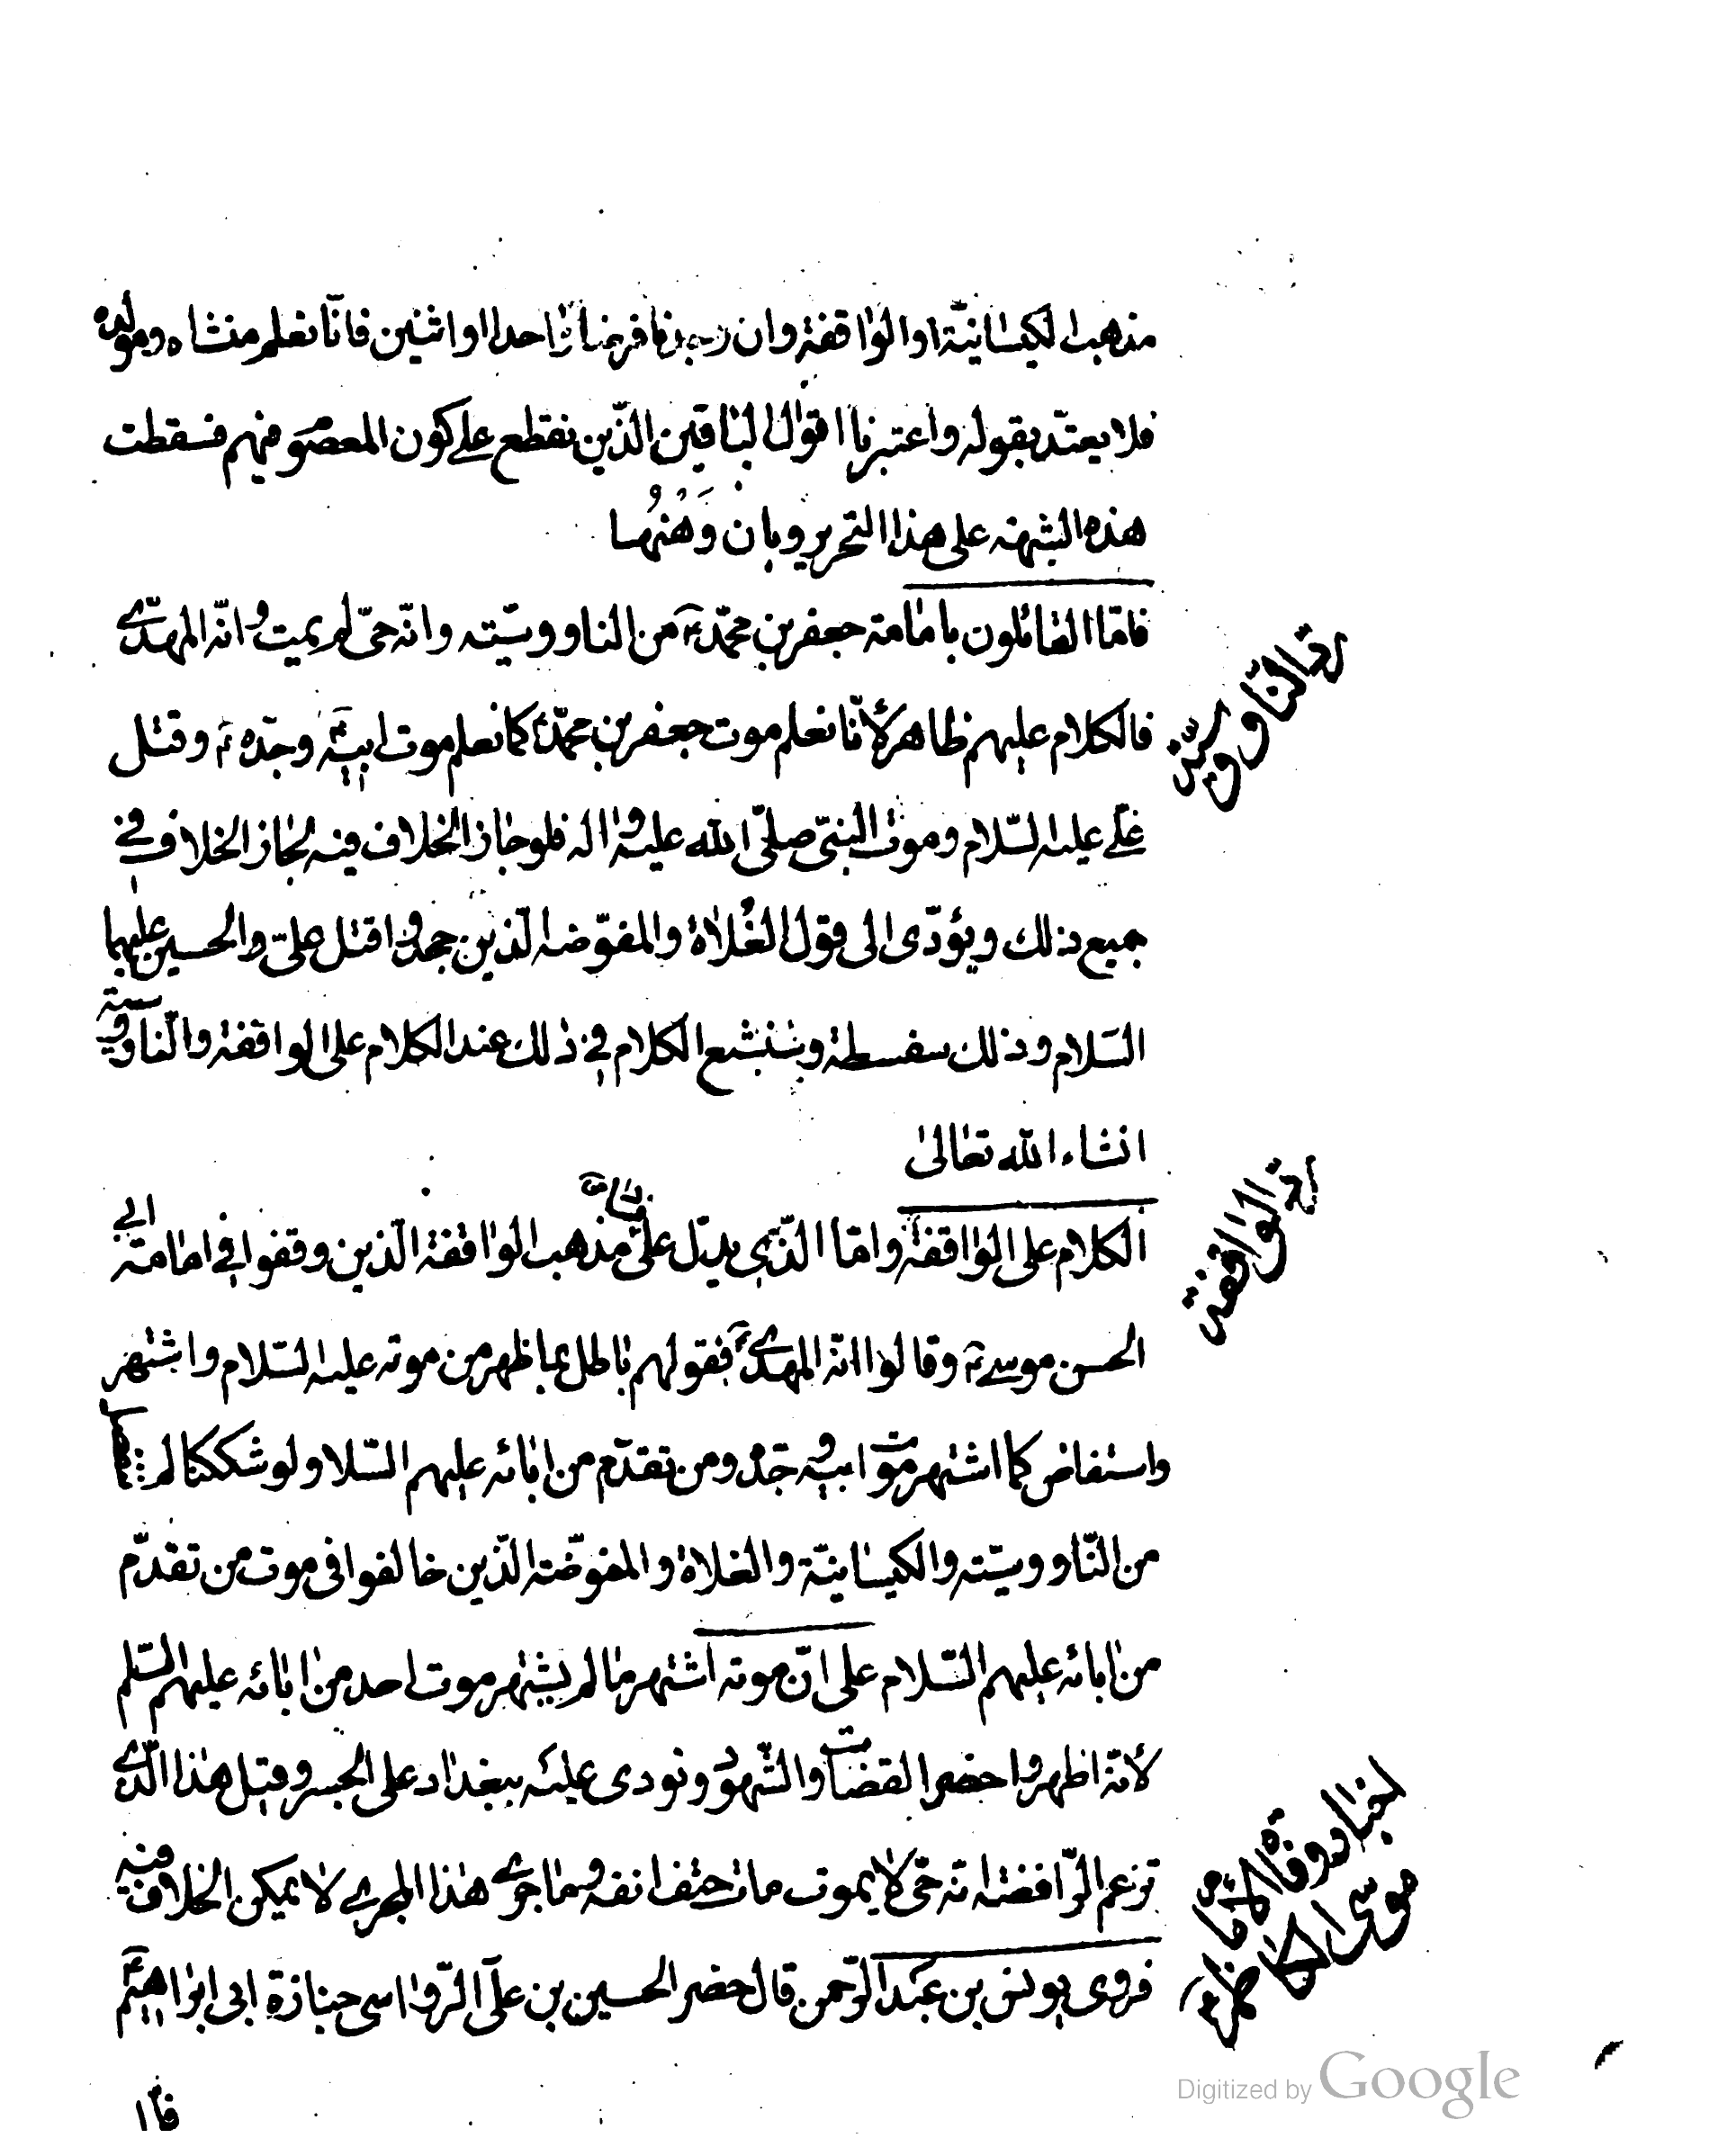 مذهب الكيسانيّة او الواقفة وان وجدنا فرضنا واحدا او اثنين فانّا نعلم منشاه ومولده
فلا يعتدّ بقوله واعتبرنا اقوال الباقين الذّين نقطع على كون المعصوم فيهم فسقطت
هذه الشبهة على هذا التحرير وبان وَهنُها
فامّا القائلون بامامة جعفر بن محمّد ؏ من الناووسيّته وانّه حىّ لم يمت وانّه المهدّى
ردّ الناووسيّة
فالكلام عليهم ظاهر لأنّا نعلم موت جعفر بن محمّد ؏ كما نعلم موت ابيه ؏ وجدّه ؏ وقتل
علىّ عليه السّلام وموت النبىّ صلّى الله عليه واله فلو جاز الخلاف فيه لجاز الخلاف فى
جميع ذلك ويؤدّى الى قول الغُلاة والمفوّضه الّذين جحدوا قتل علىّ والحسين عليهما
السّلام وذلك سفسطة وسنشبع الكلام فى ذلك عند الكلام على الواقفة والنّاووسية
انشاء الله تعالىٰ
ردّ الواقفة
الكلام على الواقفة وامّا الذّى يدلّ على فساد مذهب الواقفة الّذين وقفوا فى امامة ابى
الحسن موسى ؏ وقالوا انّه المهدىّ فقولهم باطل بما ظهر من موته عليه السّلام واشتهر
واستفاض كما اشتهر موت ابيه وجدّه ومن تقدّم من ابائه عليهم السّلا ولو شككنا لم
من النّاووسيّته والكيسانيّة والغلاة والمفوّضّة الّذين خالفوا فى موت من تقدّم
من ابائه عليهم السّلام على انّ موته اشتهر ما لم يشتهر موت احد من ابائه عليهم السّلم
لأنّه اظهر واحضر القضات والشّهود ونودى عليه ببغداد على الجسر وقيل هذا الّذى
اخبار وفاة الامام
موسى الكاظم ؏
تزعم الرّافضة انّه حىّ لا يموت مات حتف انفه وما جرى هذا المجرى لا يمكن الخلاف فيه
فروى يونس بن عبد الرّحمن قال حضر الحسين بن علىّ الرّواسى جنازة ابى ابراهيم ؏
فلمّا
Digitized by Google